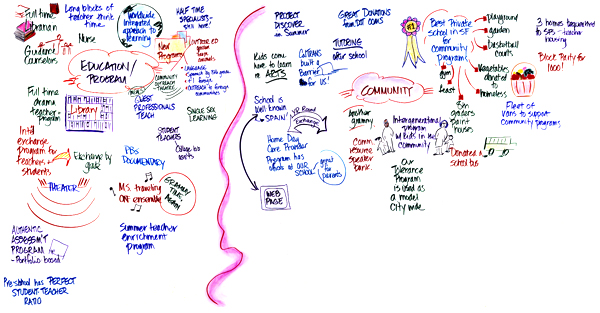 Full time
librarian
Guidance
Counselors
Nurse
Long blocks of
teacher think
time
Worldwide
integrated
approach to
learning
HALF TIME
SPECIALISTS
New
Programs
EDUCATION/
PROGRAM
COMMUNITY
OUTREACH
THEATRE
GUEST
PROFESSIONALS
TEACH
SINGLE SEX
LEARNING
Full time
drama
teacher-
program
Library
Int'l
exchange
program for
teachers +
students
Exchange by
grade
THEATER
PBS
DOCUMENTARY
STUDENT
TEACHERS
College lab
M.S. traveling
ensemble
GRAMMY
Summer teacher
enrichment
program
AUTHENTIC
ASSESSM'T
PROGRAM
- Portfolio based
Pre school has PERFECT
STUDENT TEACHER
RATIO
PROJECT
DISCOVER
in Summer
GREAT DONATIONS
from DOT COMS
Kids come
here to learn
re ARTS
CITIZENS
built a
Barrier
for US!
TUTORING
after school
COMMUNITY
#1
Best Private
school in SF
for
Community
Programs
playground
garden
basketball
courts
Vegetables
donated to
homeless
gym
feast
3 homes bequeathed
to SFS - teacher
housing
Block Party for
1000!
School is
well known
SPAIN
Exchange
Home Day
Care Provider
Program has
at OUR
SCHOOL
great
for
parents
WEB
PAGE
Another
granny
Comm.
resource
speaker
bank
Intergenerational
program
KIDS in the
COMMUNITY
Our
Tolerance
Program
is used as
a model
City wide
8th
graders
paint
houses
Donated a
school bus
Fleet of
vans to support
community programs